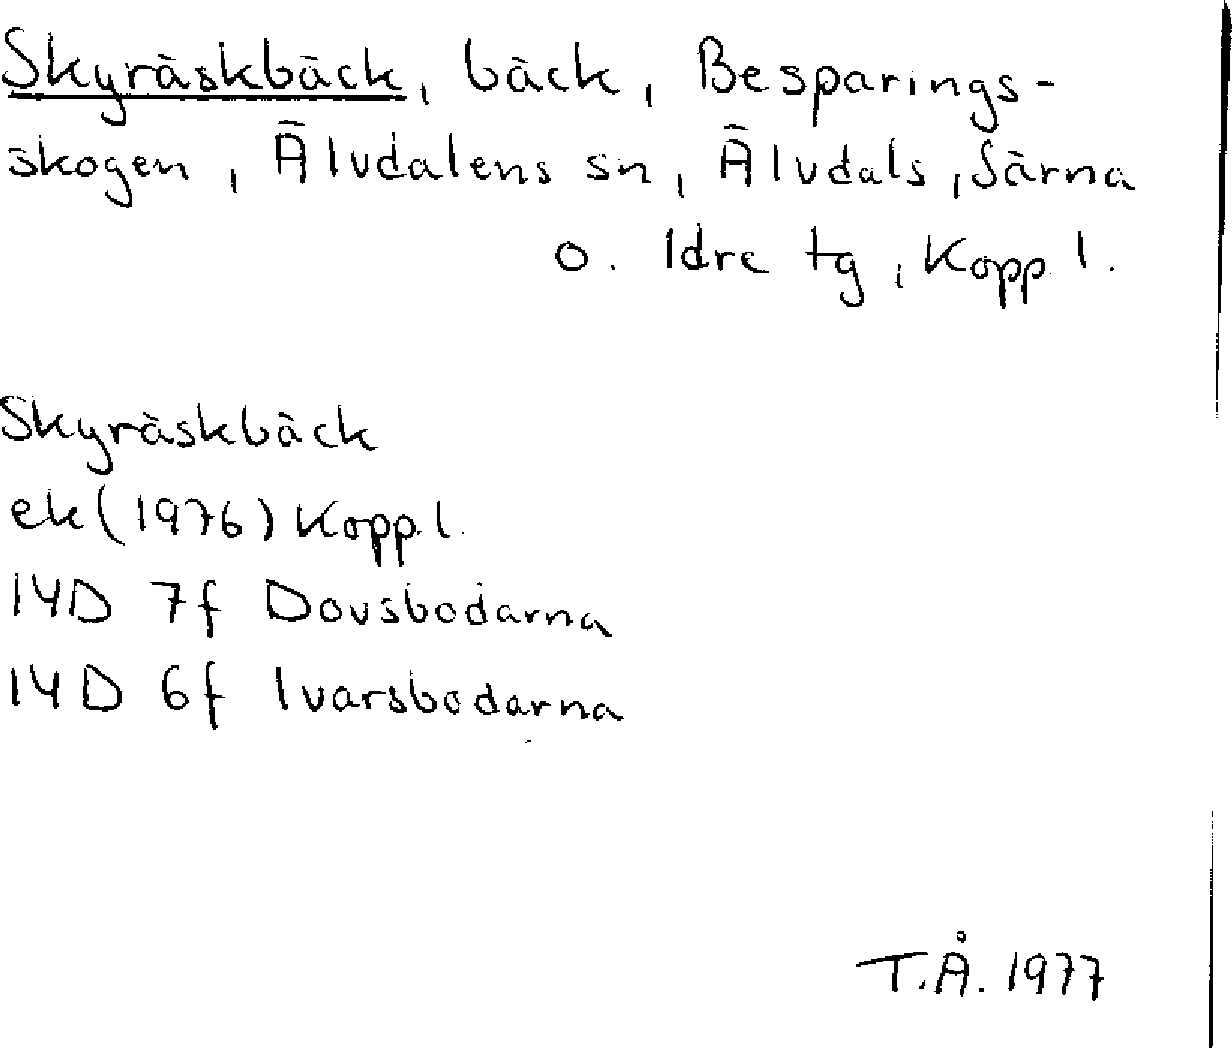 Skyräskbäck, bäck, Besparings-
skogen, Älvdalens sn, Älvdals, Särna
o. Idre tg, Koppl.
Skyräskbäck
ek (1976) Koppl.
14D 7f Dovsbodarna
14D 6f Ivarsbodarna
T.Å. 1977